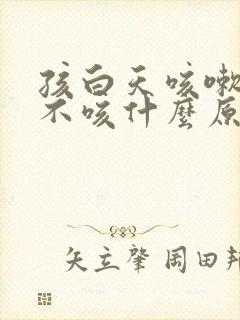 孩白天咳嗽
不咳什麼原
矢立肇 岡田邦